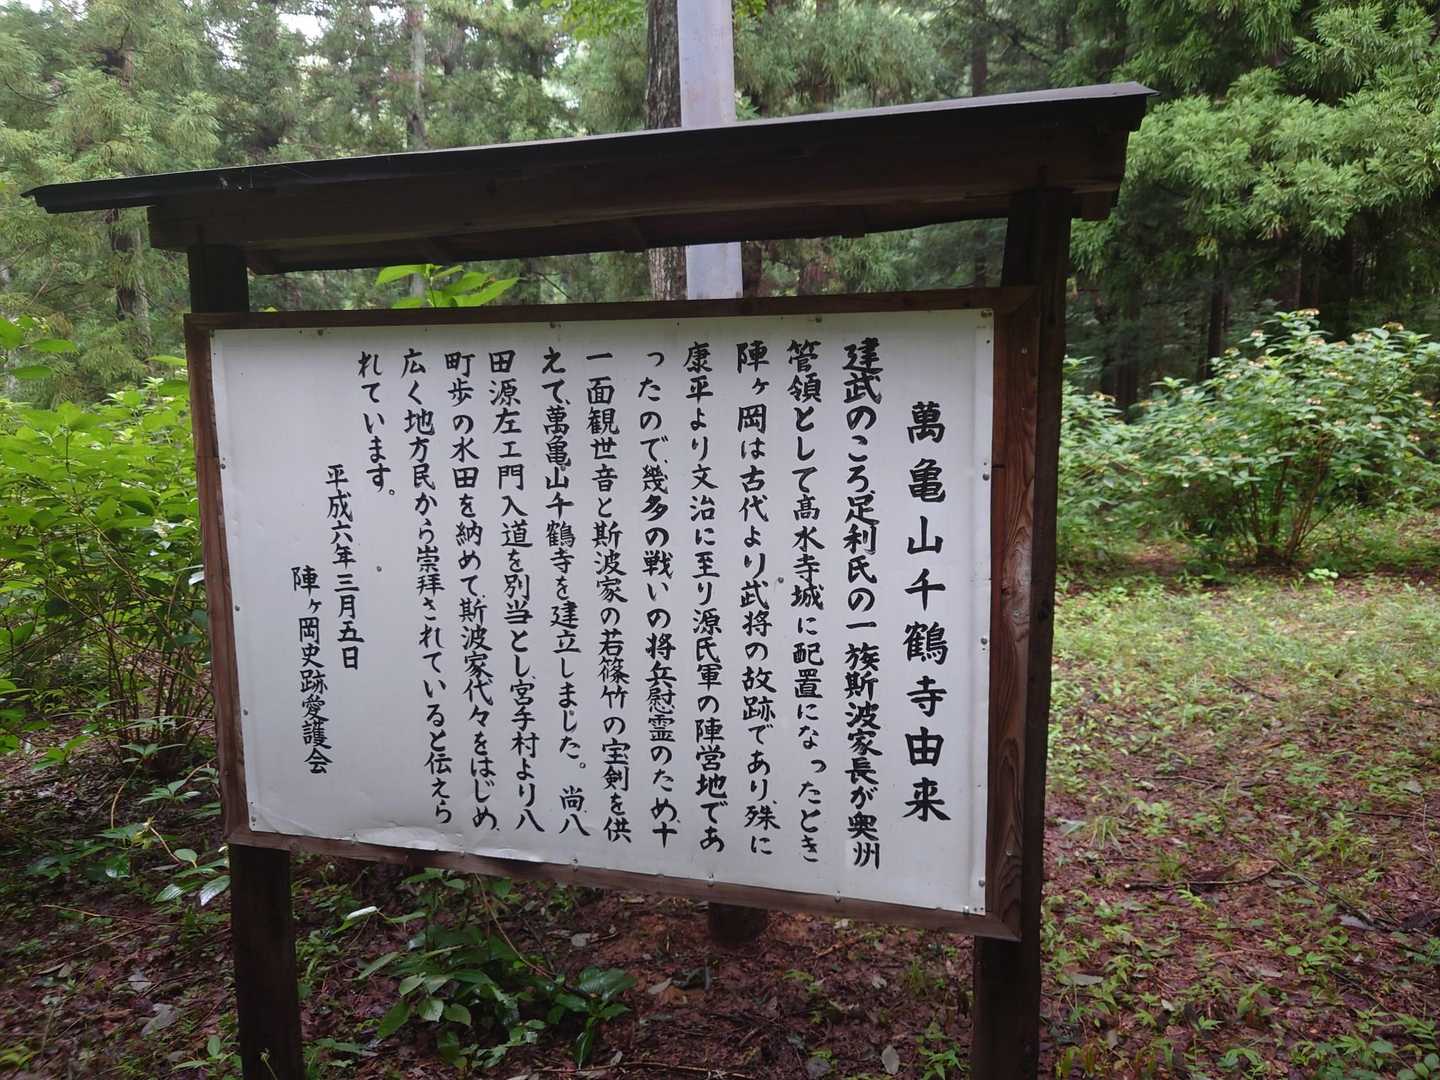 萬亀山千鶴寺由来
建武のころ足利氏の一族斯波家長が奥州
管領として髙水寺城に配置になったとき
陣ヶ岡は古代より武将の故跡であり、殊に
康平より文治に至り源氏軍の陣営地であ
ったので、幾多の戦いの将兵慰霊のため、十
一面観世音と斯波家の若篠竹の宝剣を供
えて、萬亀山千鶴寺を建立しました。尚八
田源左エ門入道を別当とし、宮手村より八
町歩の水田を納めて、斯波家代々をはじめ、
広く地方民から崇拝されていると伝えら
れています。
平成六年三月五日
陣ヶ岡史跡愛護会